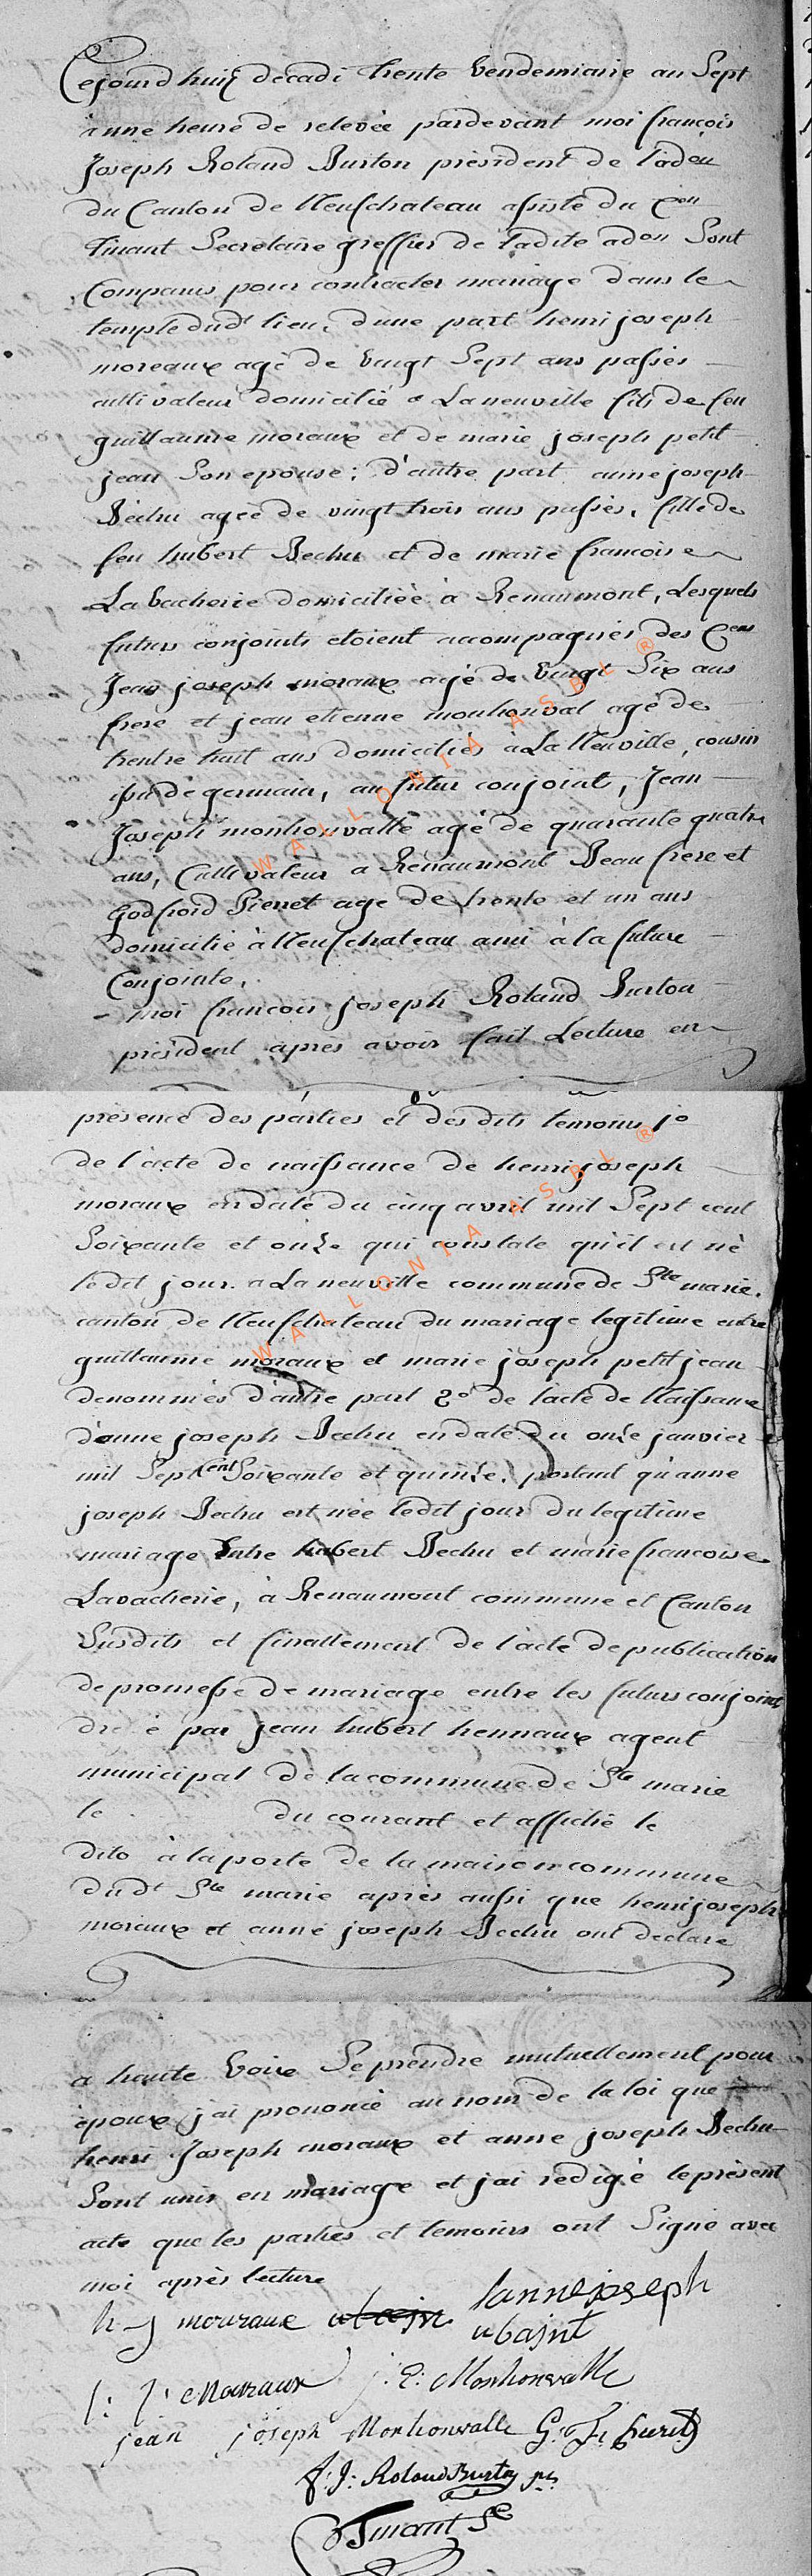 Cejourd'huiz decadi trente Vendemiaire an Sept
à une heure de relevée pardevant moi françois
Joseph Roland Burton président de l'adon
du Canton de Neufchateau assisté du Cen
Tinant Secretaire greffier de ladite adon Sont
Comparus pour contracter mariage dans le
temple dudt lieu, d'une part henri joseph
moreaux agé de Vingt Sept ans passés
cultivateur domicilié a Laneuville fils de feu
guillaume moraux et de marie joseph petit
jean Son epouse; d'autre part anne joseph
Bechu agée de vingt trois ans passés, fille de
feu hubert Bechu et de marie francoise
La Vacherie domiciliée à Renaumont, Lesquels
futurs conjoints etoient accompagnés des Cens
Jean joseph moraux agé de Vingt Six ans
frere et jean etienne monhonval agé de
trentre huit ans domiciliés à La Neuville, cousin
issu de germain, au futur conjoint, Jean
Joseph monhonvalle agé de quarante quatre
ans, Cultivateur a Renaumont Beau frere et
Godfroid Pierret age de trente et un ans
domicilié à Neufchateau ami à la future
Conjointe,
- moi francois joseph Roland Burton
président après avoir fait Lecture en
présence des parties et des dits temoins 1o
de l'acte de naissance de henri joseph
moraux en date du cinq avril mil Sept cent
Soixante et onze qui constate qu'il est né
ledit jour a La neuville commune de Ste marie,
canton de Neufchateau du mariage legitime entre
guillaume moraux et marie joseph petit jean
denommés d'autre part 2o de l'acte de Naissance
d'anne joseph Bechu en date du onze janvier
mil Sept cent Soixante et quinze, portant qu'anne
joseph Bechu est née ledit jour du legitime
mariage Entre hubert Bechu et marie francoise
Lavacherie, à Renaumont commune et Canton
Susdits et finallement de l'acte de publication
de promesse de mariage entre les futurs conjoints
dre é par jean hubert hennaux agent
municipal de la commune de Ste marie
le du courant et affiché le
dito à la porte de la maison commune
dudt Ste marie après aussi que henri joseph
moraux et anne joseph Bechu ont declaré
a haute Voix Se prendre mutuellement pour
époux j'ai prononcé au nom de la loi que
henri Joseph moraux et anne joseph Bechu
Sont unis en mariage et j'ai rédigé le présent
acte que les parties et temoins ont Signé avec
moi après lecture
h j mouraux anne joseph
J: J: Mouraux J: E: Monhonvalle
jean joseph Monhonvalle G:
f: J: Roland Burton pt
Tinant Se
WALLONIA ASBL ®
WALLONIA ASBL ®